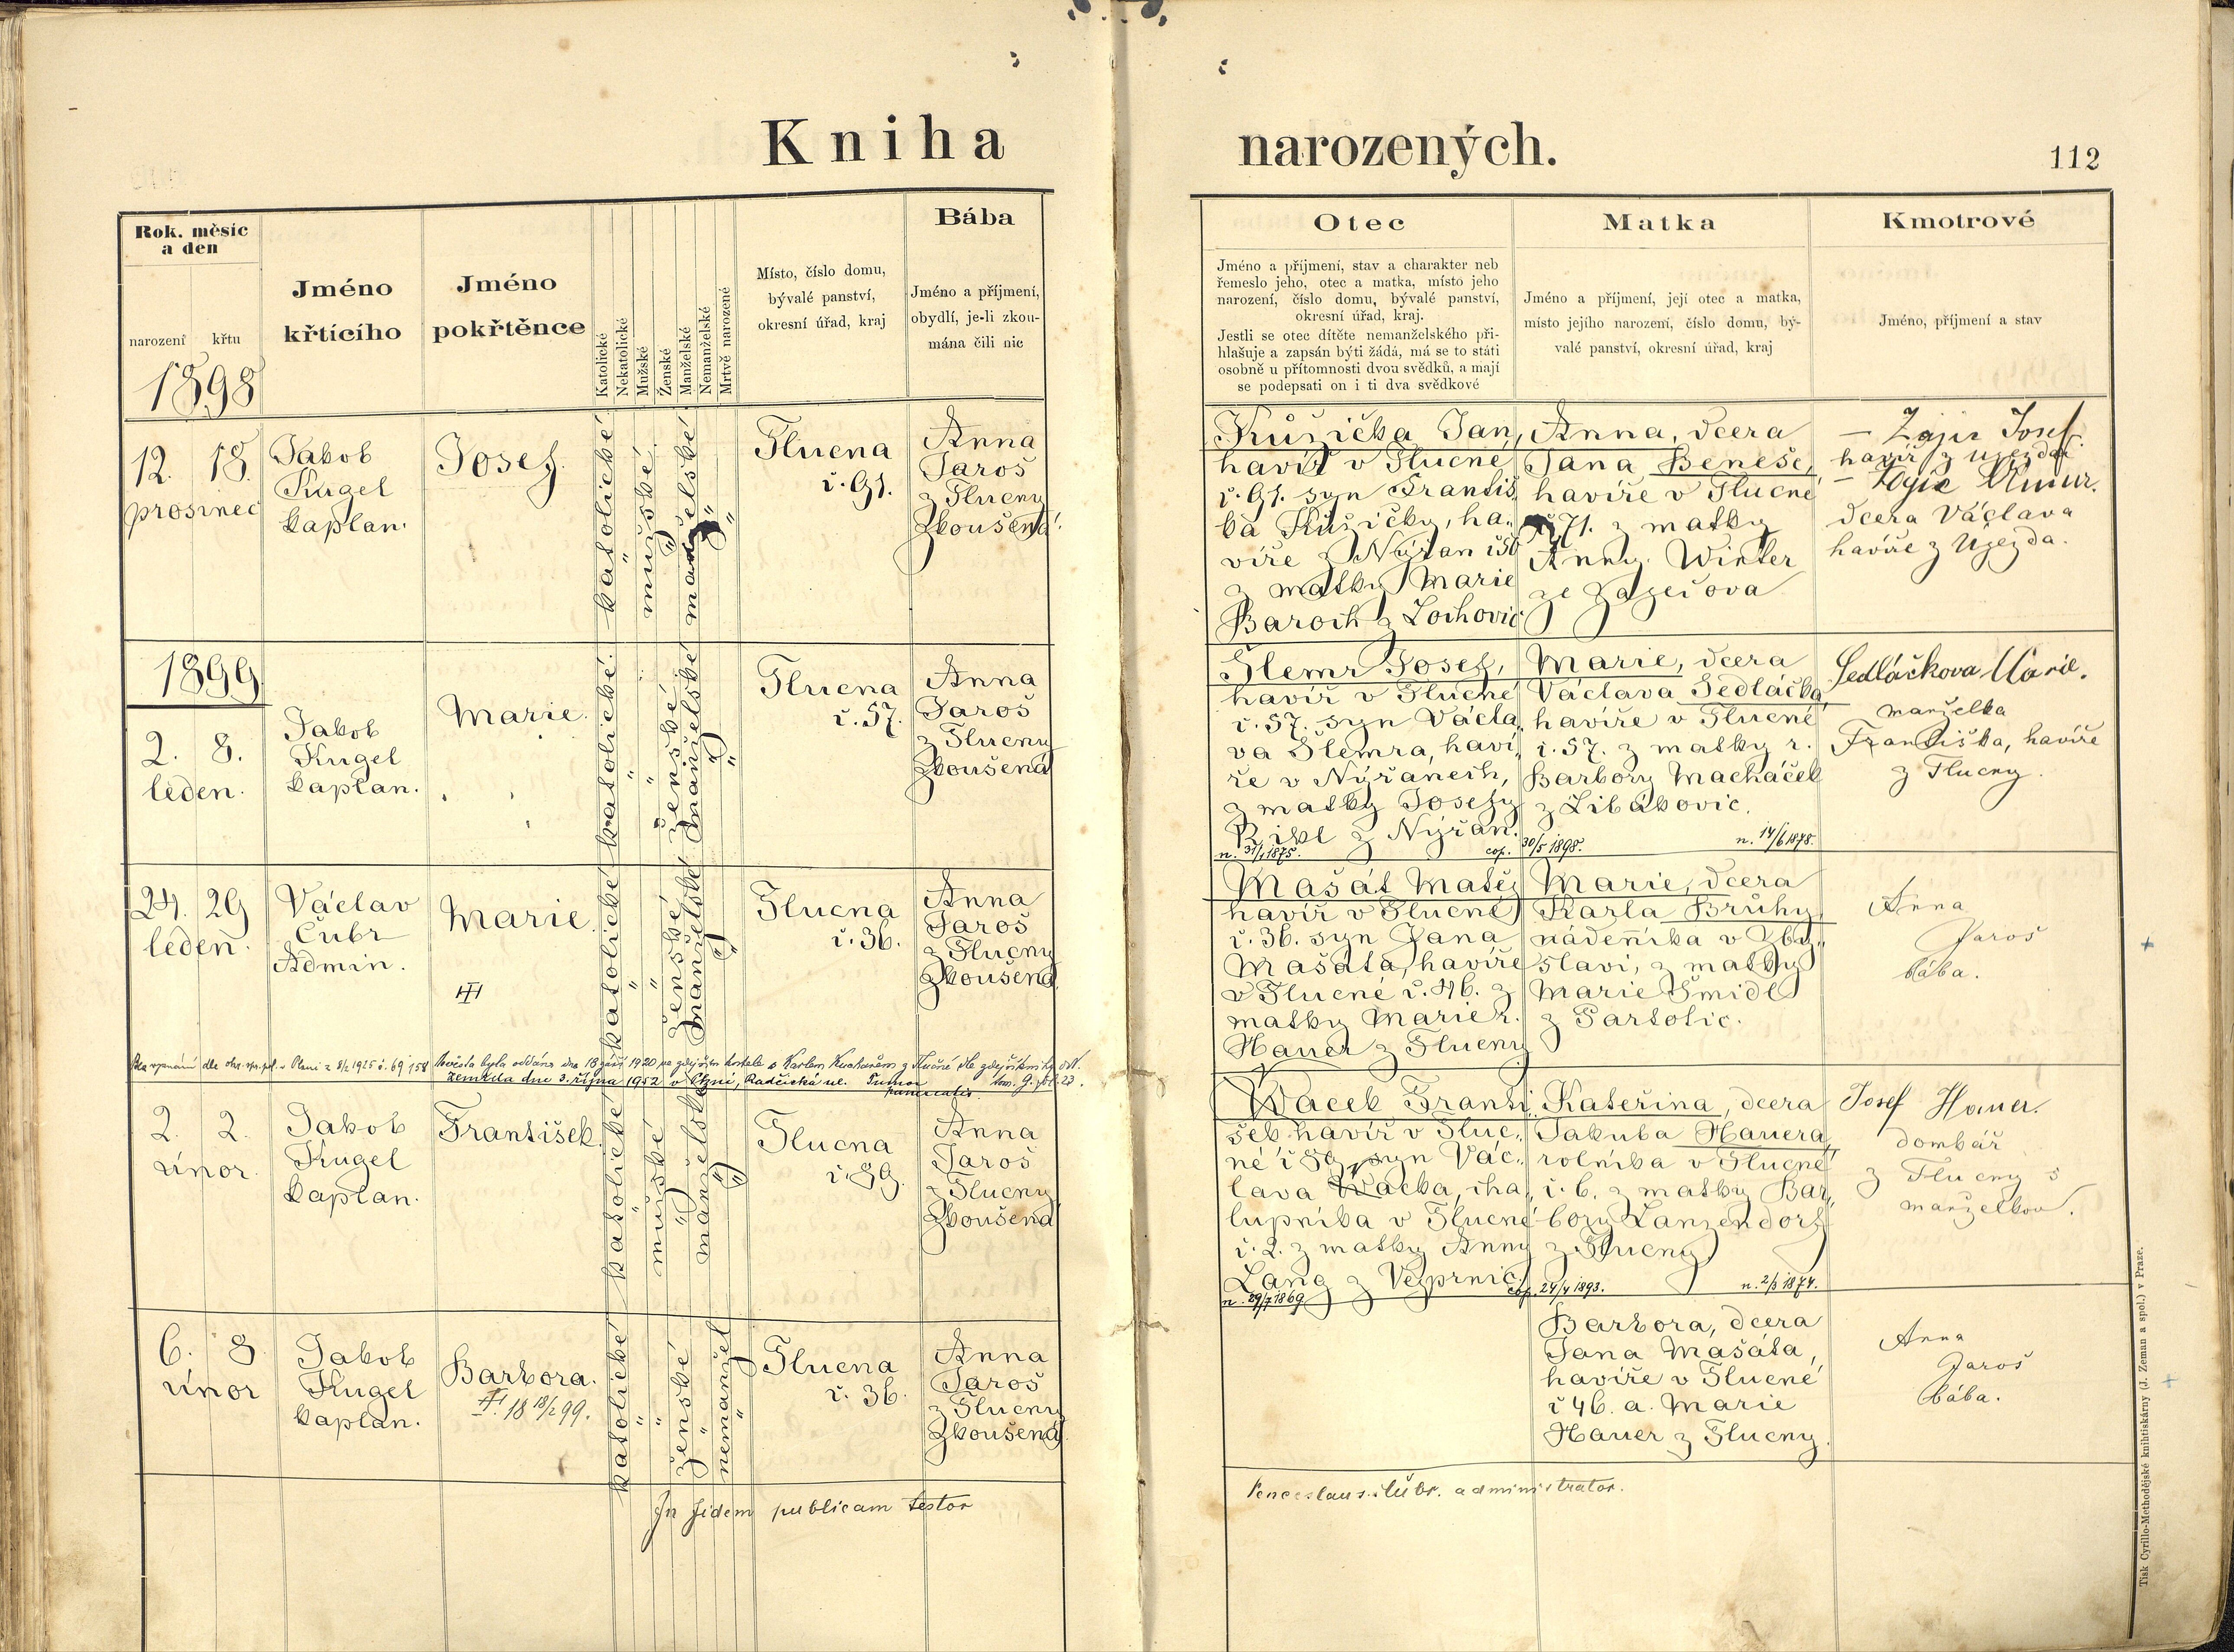 Kniha
narozených.
112
Rok. měsíc
a den
narození křtu
1898
Jméno
křtícího
Jméno
pokřtěnce
Katolické
Nekatolické
Mužské
Ženské
Manželské
Nemanželské
Mrtvě narozené
Místo, číslo domu,
bývalé panství,
okresní úřad, kraj
Bába
Jméno a příjmení,
obydlí, je-li zkou-
mána čili nic
Otec
Jméno a příjmení, stav a charakter neb
řemeslo jeho, otec a matka, místo jeho
narození, číslo domu, bývalé panství,
okresní úřad, kraj.
Jestli se otec dítěte nemanželského při-
hlašuje a zapsán býti žádá, má se to státi
osobně u přítomnosti dvou svědků, a mají
se podepsati on i ti dva svědkové
Matka
Jméno a příjmení, její otec a matka,
místo jejího narození, číslo domu, bý-
valé panství, okresní úřad, kraj
Kmotrové
Jméno, příjmení a stav
12. 18.
prosinec
Jakob
Kugel
kaplan.
Josef.
katolické
"
mužské
"
manželské
"
"
Tlucna
č. 91.
Anna
Jaroš
z Tlucny
Zkoušená.
Kůžička Jan,
havíř v Tlucné
č. 91. syn Františ
ka Kůžičky, ha„
víře z Nýřan
z matky Marie
Baroch z Lochovic
Anna, dcera
Jana Beneše,
havíře v Tlucné
č 71. z matky
Anny Winter
ze Zazečova
— Zajíc Josef
havíř z Ujezda
— Zajíc
dcera Václava
havíře z Ujezda.
1899
2. 8.
leden.
Jakob
Kugel
kaplan.
Marie.
katolické.
"
"
ženské
manželské
"
"
Tlucna
č. 57.
Anna
Jaroš
z Tlucny
Zkoušená
Šlemr Josef,
havíř v Tlucné
č. 57. syn Václa„
va Šlemra, haví„
ře v Nýřanech,
z matky Josefy
z Nýřan.
n. 31/1 1875. cop. 30/5 1898. n. 14/6 1878.
Marie, dcera
Václava Sedláčka,
havíře v Tlucné
č. 57. z matky r.
Barbory Macháček
z Libákovic.
Sedláčkova Marie.
manželka
Františka, havíře
z Tlucny.
24. 29
leden.
Václav
Čubr
Admin.
Marie.
katolické
"
"
ženské
manželské
"
Tlucna
č. 36.
Anna
Jaroš
z Tlucny
Zkoušená
Mašát Matěj
havíř v Tlucné
č. 36. syn Jana
Mašáta, havíře
v Tlucné č. 46. z
matky Marie r.
Hauer z Tlucny
Marie, dcera
Karla Brůhy
nádeníka v Zby„
slavi, z matky
Marie Šmidl
z
Anna
Jaroš
bába.
Bez vyznání dle 1925 č. 69158 Nevěsta byla oddána dne 18 září 1920 ve zdejším kostele s Karlem Kuchařem z Tlučné dle zdejší knihy odd.
Zemřela dne 3. října 1952 v Plzni, Radčická ul. Tumor tom. 9. fol. 23.
pancreatis.
2. 2.
únor
Jakob
Kugel
kaplan.
František.
katolické
"
mužské
"
manželské
"
Tlucna
č. 89.
Anna
Jaroš
z Tlucny
Zkoušená
Wacek Franti„
šek havíř v Tluc„
né č 89, syn Vác„
lava Wacka, cha„
lupníka v Tlucné
č. 2. z matky Anny
Lang z Vejprnic.
n. 29/7 1869 cop. 24/4 1893. n. 2/3 1874.
Kateřina, dcera
Jakuba Hauera,
rolníka v Tlucné
č. 6. z matky Bar„
bory Lanzendorf
z Tlucny
Josef Hauer.
domkář
z Tlucny s
manželkou.
6. 8
únor
Jakob
Kugel
kaplan.
Barbora.
18 18/2 99.
katolické
"
"
ženské
"
nemanžel
"
Tlucna
č. 36.
Anna
Jaroš
z Tlucny
Zkoušená.
Barbora, dcera
Jana Mašáta,
havíře v Tlucné
č 46. a. Marie
Hauer z Tlucny.
Anna
Jaroš
bába.
In fidem publicam testor
Venceslaus Čubr. administrator.
Tisk Cyrillo-Methodějské knihtiskárny (J. Zeman a spol.) v Praze.